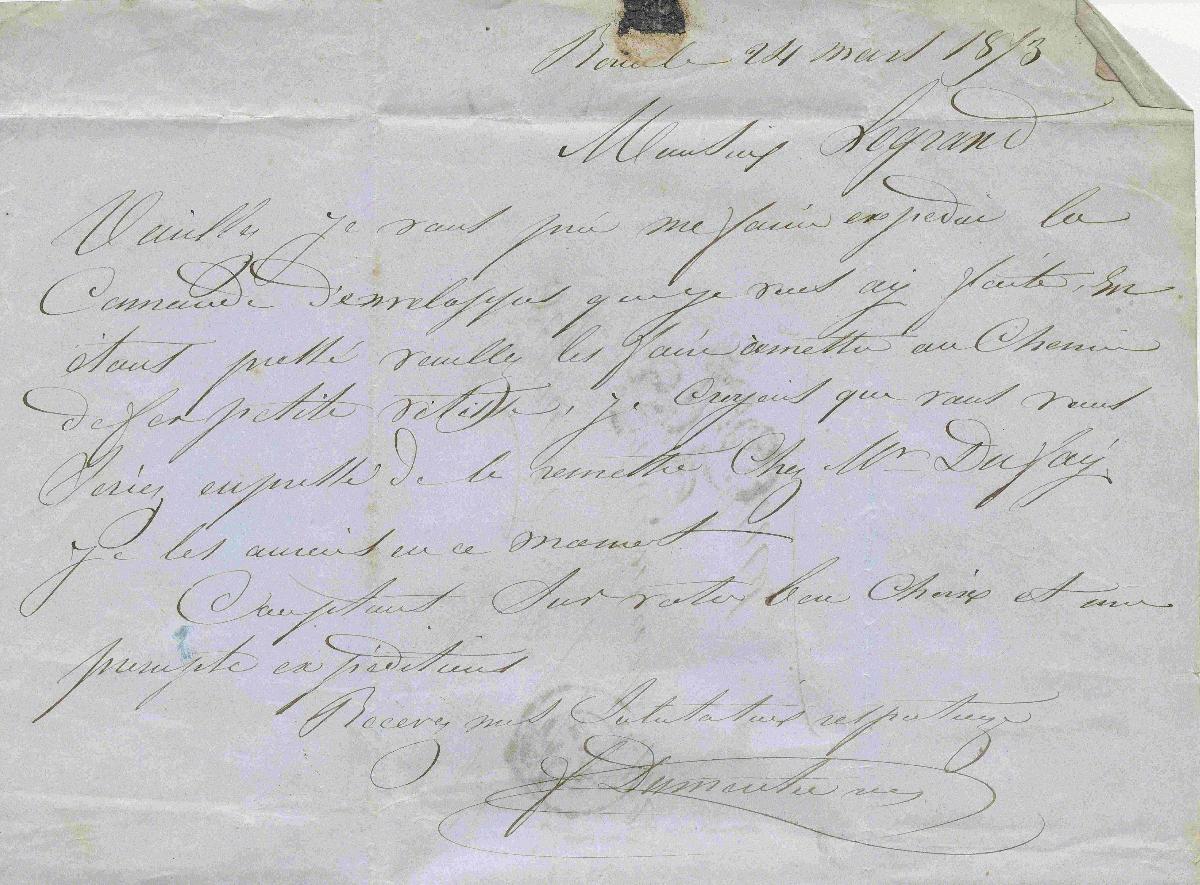 24 mars 1873
Monsieur Legrand
Veuillez je vous prie me faire expedier la
Comande d'enveloppes que je vous ay faite, En
étant pressé veuillez les faire amettre au Chemin
de fer petite vitisse, je croyais que vous vous
Seriez enpressé de le remettre Chez Mr Dufay
je les aureis en ce moment
Comptant Sur votre bon Choix et une
prompte expéditions
Recevez mes Salutations respectueuse